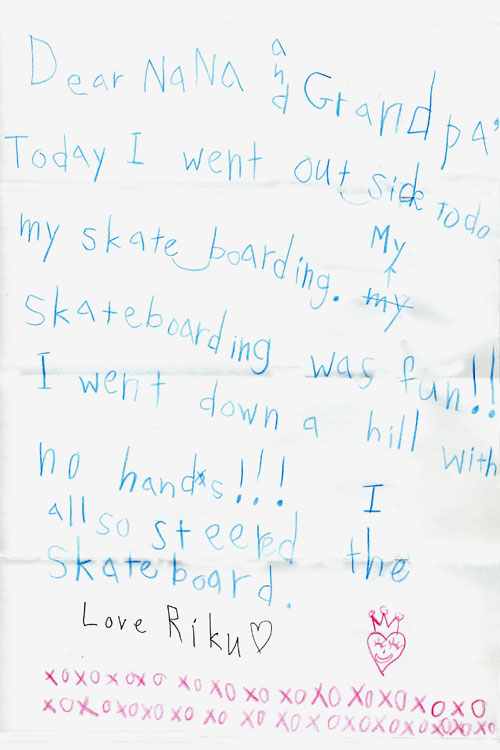 Dear NaNa and Grandpa,
Today I went out side to do
my skate boarding. My
skateboarding was fun!!
I went down a hill with
no hands!!! I
all so steered the
skateboard.
Love Riku♡
xoxoxoxo xoxo xo xoxoxoxoxoxoxo
xoxoxoxo xo xo xo xoxoxoxoxoxoxo